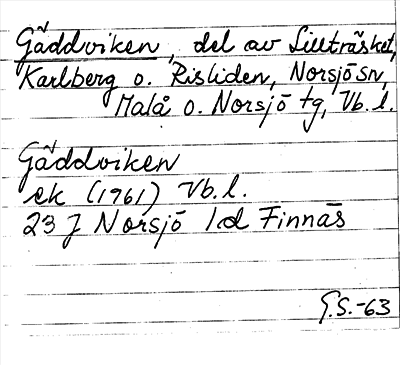 Gäddviken, del av Lillträsket,
Karlberg o. Risliden, Norsjö sn,
Malå o. Norsjö tg, Vb. l.
Gäddviken
ek (1961) Vb. l.
23 J Norsjö 1d Finnäs
G.S.-63